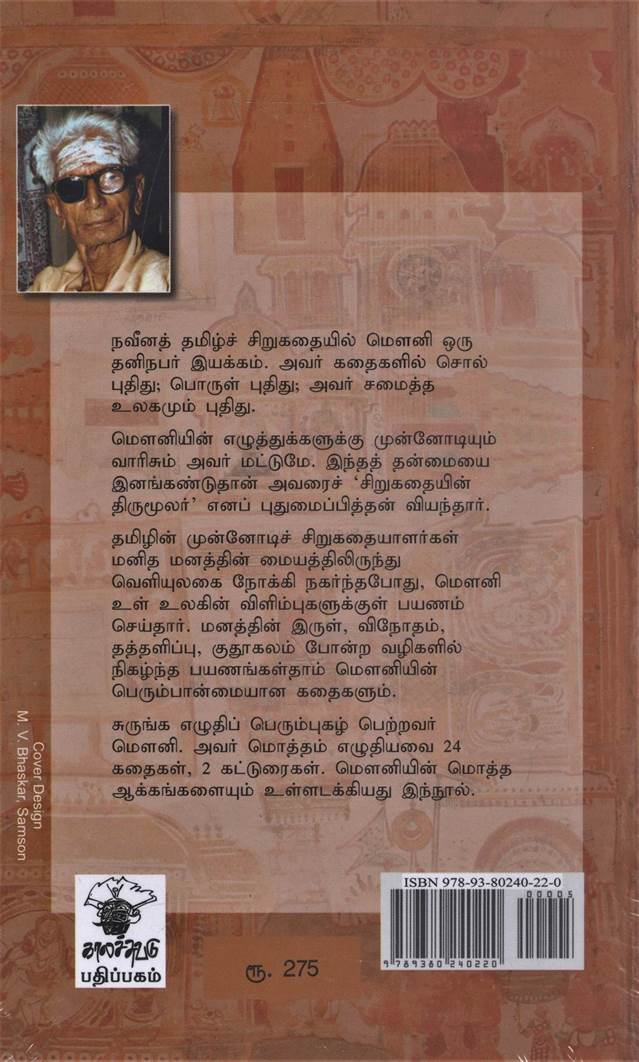 நவீனத் தமிழ்ச் சிறுகதையில் மௌனி ஒரு
தனிநபர் இயக்கம். அவர் கதைகளில் சொல்
புதிது; பொருள் புதிது; அவர் சமைத்த
உலகமும் புதிது.
மௌனியின் எழுத்துக்களுக்கு முன்னோடியும்
வாரிசும் அவர் மட்டுமே. இந்தத் தன்மையை
இனங்கண்டுதான் அவரைச் ‘சிறுகதையின்
திருமூலர்’ எனப் புதுமைப்பித்தன் வியந்தார்.
தமிழின் முன்னோடிச் சிறுகதையாளர்கள்
மனித மனத்தின் மையத்திலிருந்து
வெளியுலகை நோக்கி நகர்ந்தபோது, மௌனி
உள் உலகின் விளிம்புகளுக்குள் பயணம்
செய்தார். மனத்தின் இருள், விநோதம்,
தத்தளிப்பு, குதூகலம் போன்ற வழிகளில்
நிகழ்ந்த பயணங்கள்தாம் மௌனியின்
பெரும்பான்மையான கதைகளும்.
சுருங்க எழுதிப் பெரும்புகழ் பெற்றவர்
மௌனி. அவர் மொத்தம் எழுதியவை 24
கதைகள், 2 கட்டுரைகள். மௌனியின் மொத்த
ஆக்கங்களையும் உள்ளடக்கியது இந்நூல்.
Cover Design
M. V. Bhaskar, Samson
காலச்சுவடு
பதிப்பகம்
ரூ. 275
ISBN 978-93-80240-22-0
00005
9 789380 240220